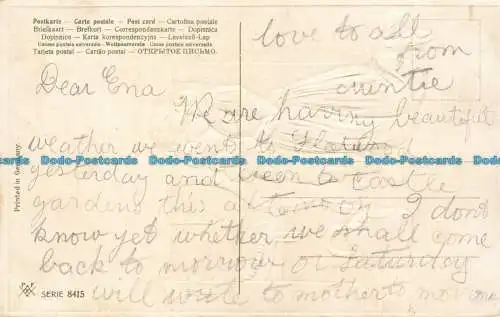 Postkarte - Carte postale - Post card - Cartolina postale
Briefkaart - Brefkort - Correspondenskarte - Dopisnica
Dopisnice - Karta korespondencyjna - Levelező-Lap
Unione postale universale - Weltpostverein - Union postale universelle
Tarjeta postal - Cartão postal - ОТКРЫТОЕ ПИСЬМО.
love to all
from
auntie
Dear Ena
We are having beautiful
weather we went to
yesterday and been to castle
gardens this afternoon I dont
know yet whether we shall come
back to morrow or Saturday
will write to mother to morrow
Printed in Germany
SERIE 8415
Dodo-Postcards Dodo-Postcards Dodo-Postcards Dodo-Postcards
Dodo-Postcards Dodo-Postcards Dodo-Postcards Dodo-Postcards